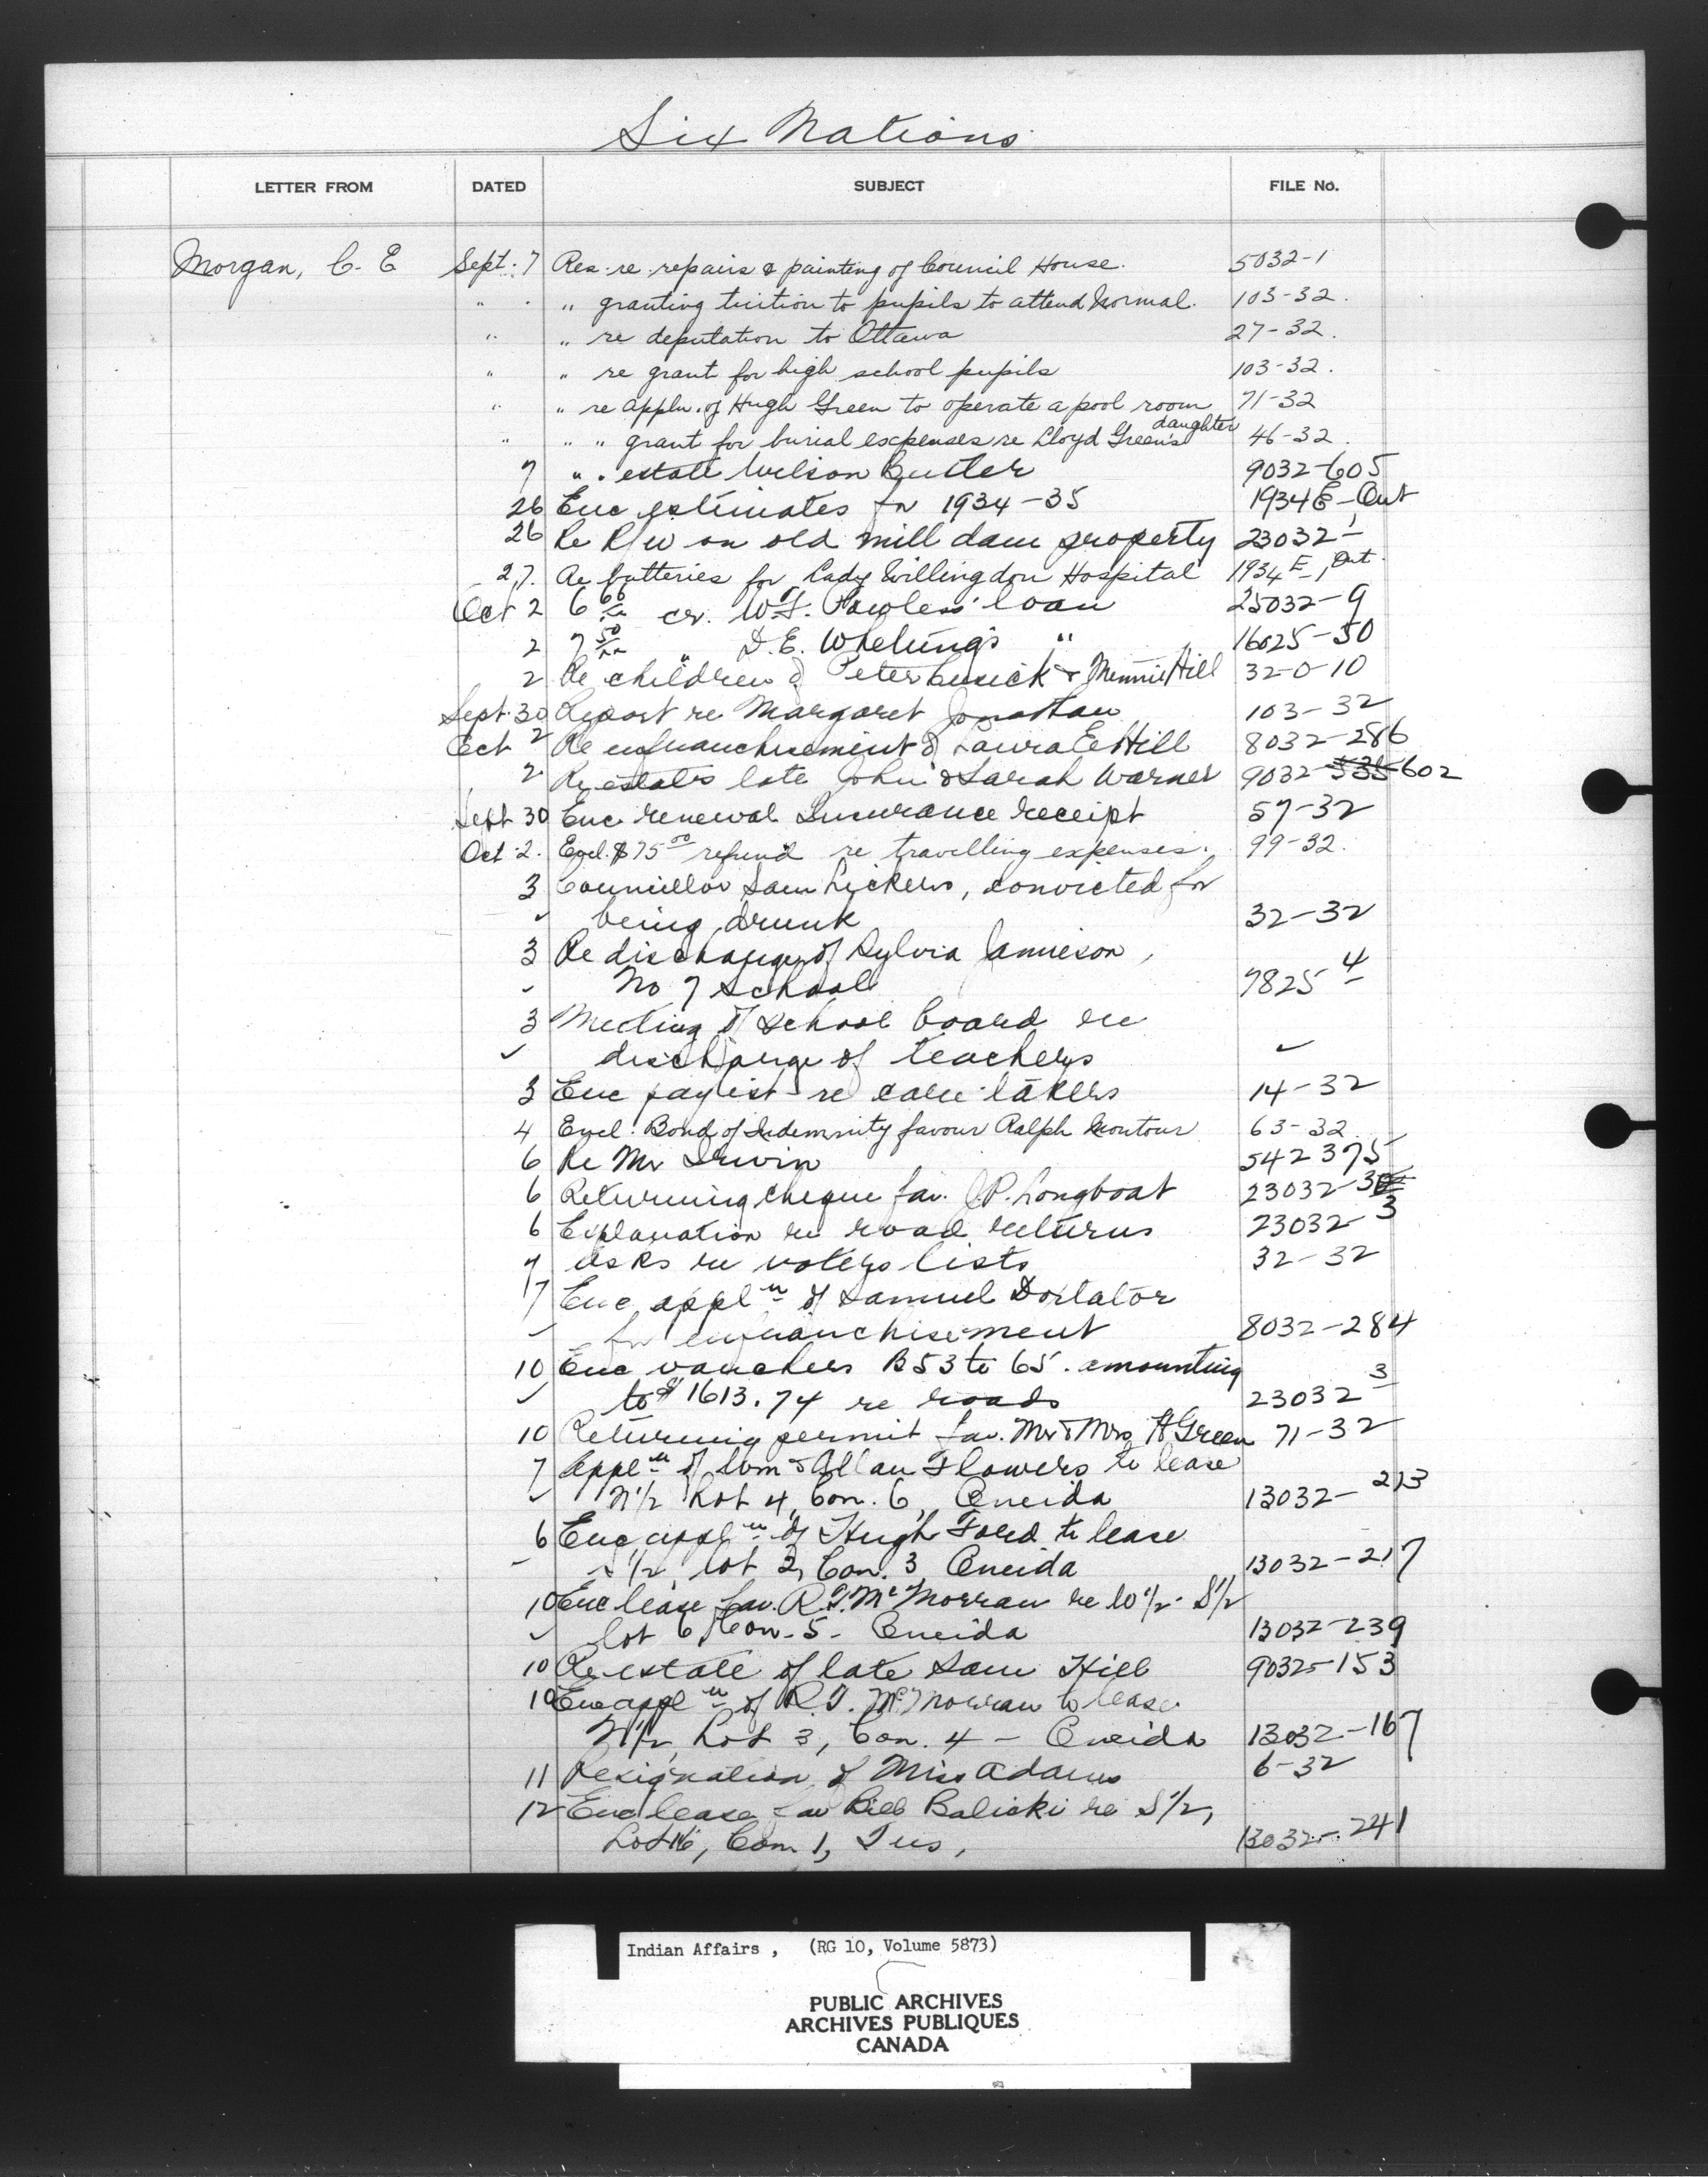 Six Nations
LETTER FROM DATED SUBJECT FILE No.
Morgan, C. E Sept. 7 Res. re repairs & painting of Council House. 5032-1
" " granting tuition to pupils to attend Normal. 103-32.
" " re deputation to Ottawa 27-32.
" " re grant for high school pupils 103-32.
" " re Appln. of Hugh Green to operate a pool room 71-32
" " " grant for burial expenses re Lloyd Green's daughter 46-32.
7 " . estate Wilson Butler 9032-605
26 Enc estimates for 1934-35 1934E-1 Ont
26 Re R/W on old mill dam property 23032-1
27. Re batteries for Lady Willingdon Hospital 1934E-1 Ont.
Oct 2 6 66/xx cr. W.F. Powless' loan 25032-9
2 7 50/xx " D.E. Whetung's " 16025-50
2 Re children of Peter Cusick & Minnie Hill 32-0-10
Sept. 30 Report re Margaret Jonathan 103-32
Oct 2 Re enfranchisement of Laura E Hill 8032-286
2 Re estates late John & Sarah Warner 9032-535-602
Sept 30 Enc renewal Insurance receipt 57-32
Oct. 2. Encl. $75 00 refund re travelling expenses. 99-32.
3 Councillor Sam Lickers, convicted for
✓ being drunk 32-32
3 Re discharge of Sylvia Jamieson,
✓ No 7 School 7825-4
3 Meeting of School board re
✓ discharge of teachers ✓
3 Enc paylist re care takers 14-32
4 Encl. Bond of Indemnity favour Ralph Montour 63-32
6 Re Mr Irwin 542375
6 Returning cheque fav. J.P. Longboat 23032-3
6 Explanation re road returns 23032-3
7 Asks re voters lists 32-32
7 Enc appln of Samuel Doxtator
✓ for enfranchisement 8032-284
10 Enc vouchers B53 to 65. amounting
✓ to $1613.74 re roads 23032-3
10 Returning permit fav. Mr & Mrs H Green 71-32
7 Appln of Wm & Allan Flowers to lease
✓ N1/2 Lot 4, Con. 6, Oneida 13032-213
6 Enc appln of Hugh Ford to lease
✓ S1/2, lot 2, Con. 3 Oneida 13032-217
10 Enc lease fav. R.T. McMorran re W1/2 - S1/2
✓ lot 6, Con. 5 - Oneida 13032-239
10 Re estate of late Sam Hill 9032-153
10 Enc appln of R.T. McMorran to lease
N1/2, Lot 3, Con. 4 - Oneida 13032-167
11 Resignation of Miss Adams 6-32
12 Enc lease fav Bill Balicki re S1/2,
Lot 16, Con 1, Tus, 13032-241
Indian Affairs , (RG 10, Volume 5873)
PUBLIC ARCHIVES
ARCHIVES PUBLIQUES
CANADA